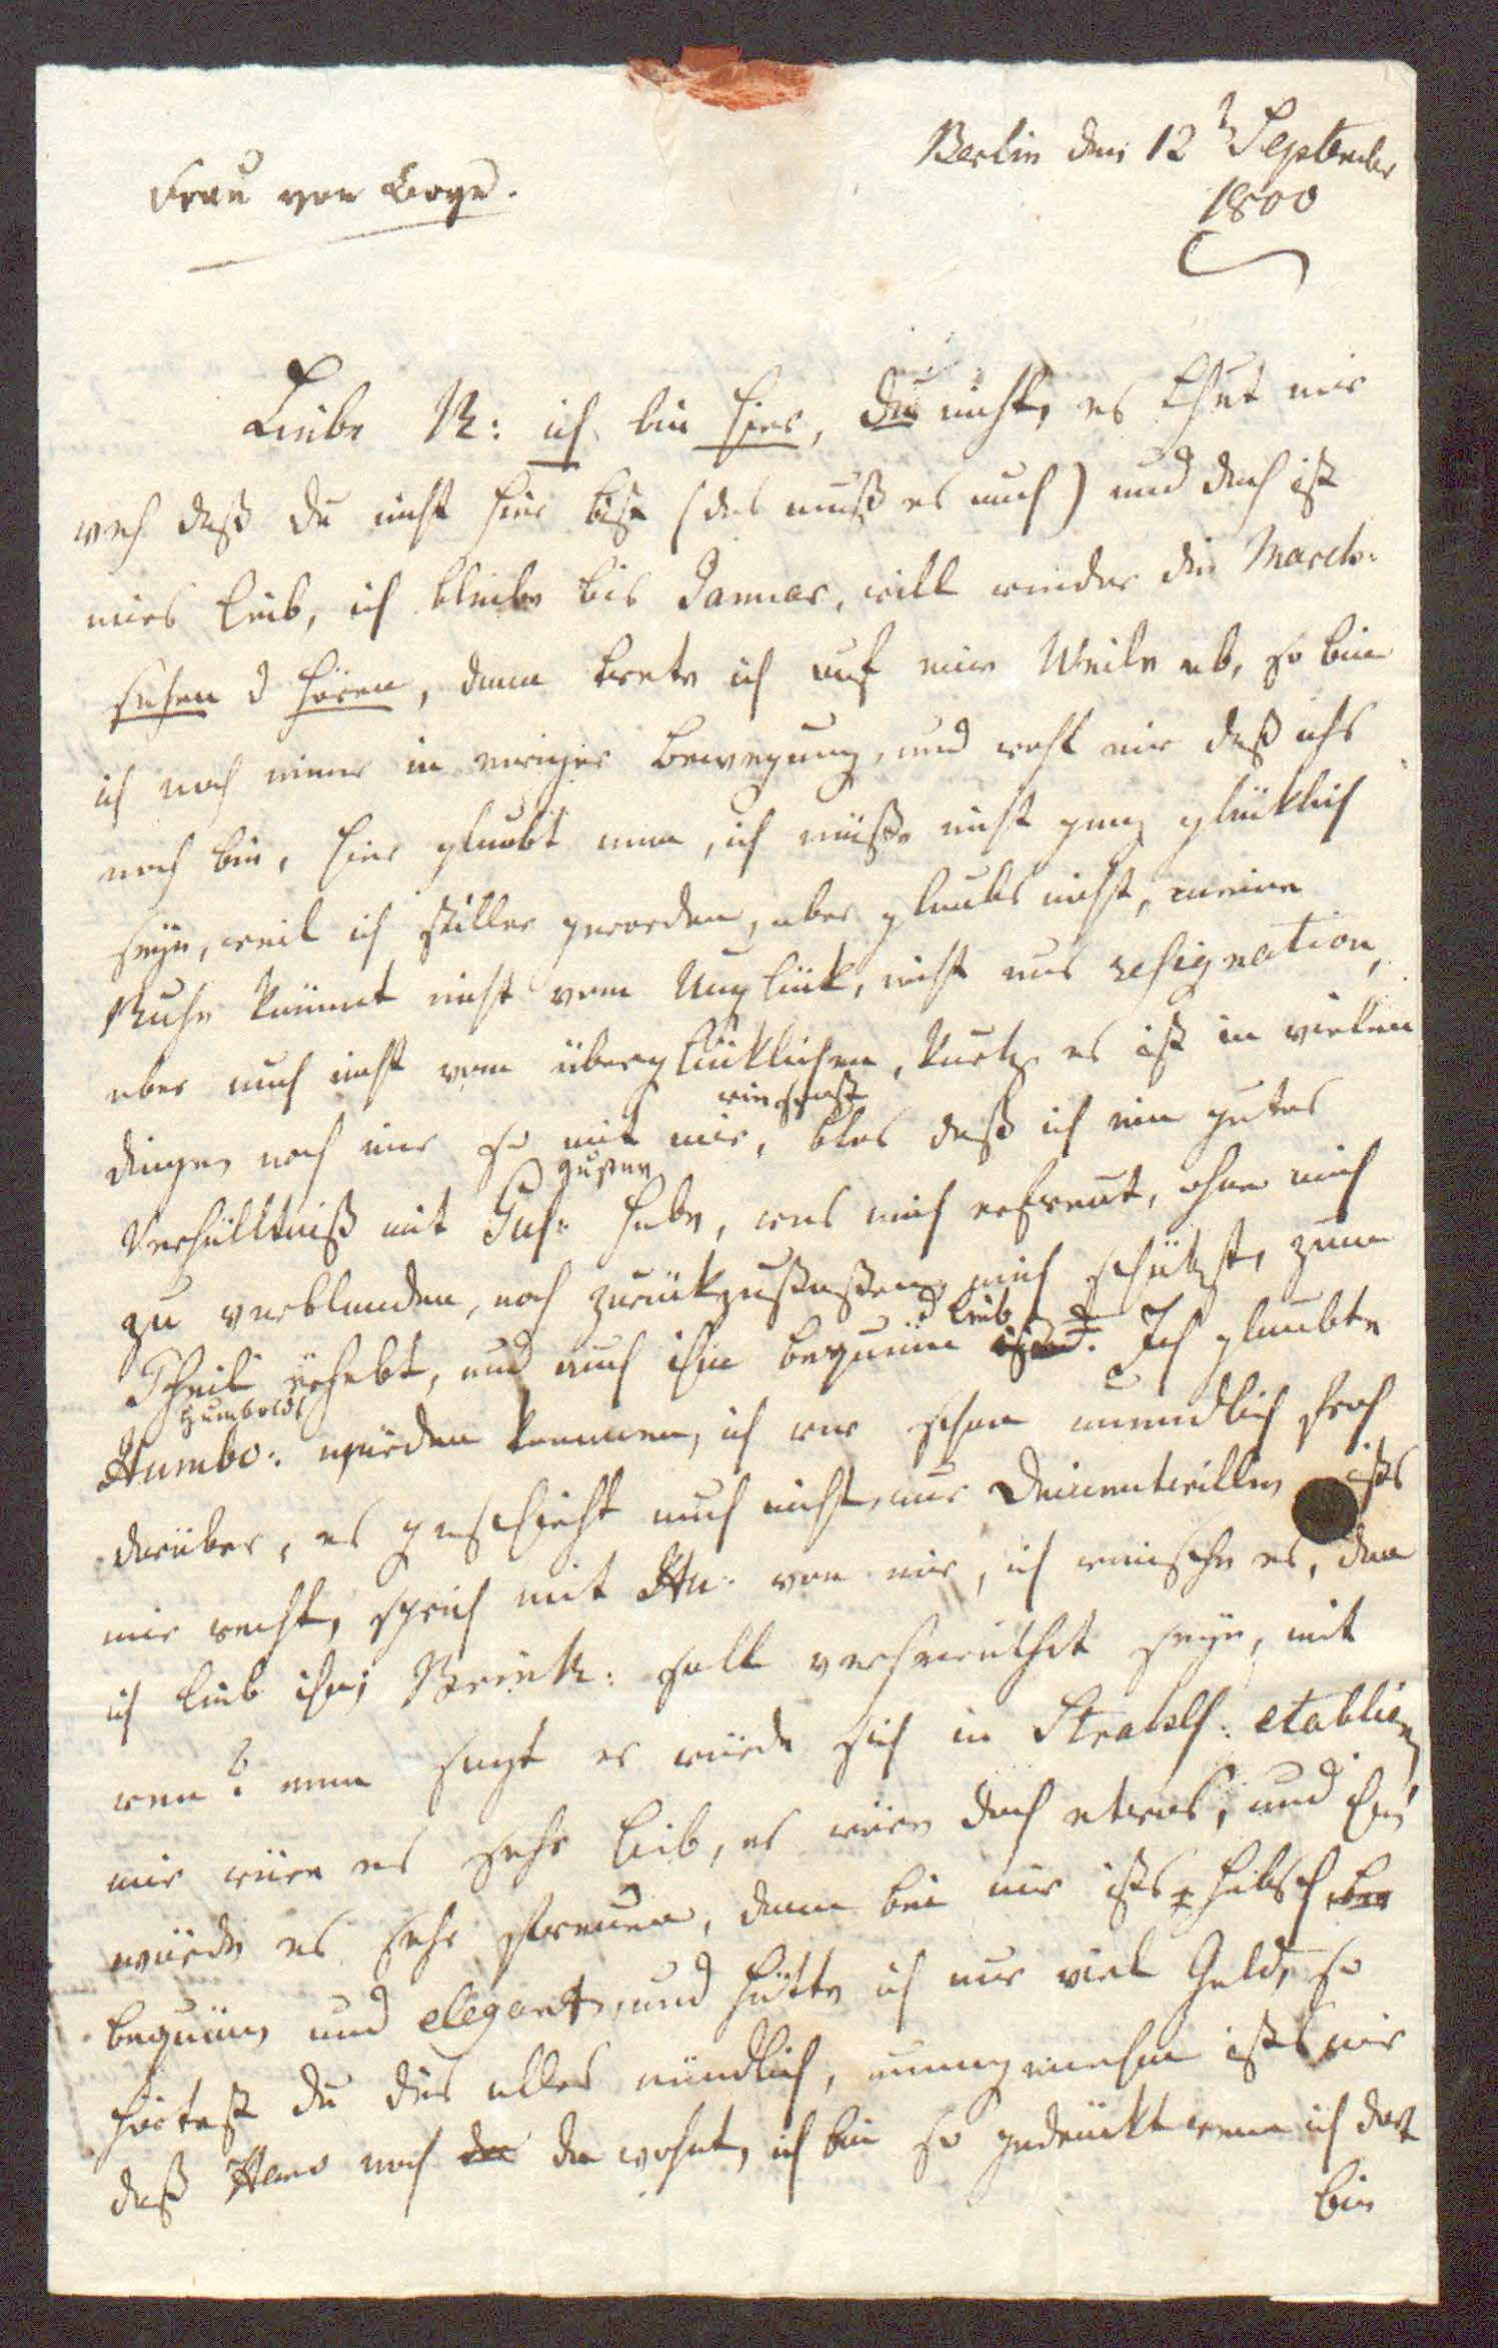 Berlin den 12t September
1800
Frau von Boye.
Liebe R: ich bin hier, Du nicht, es thut mir
weh daß du nicht hier bist (das muß es auch) und doch ist
mirs lieb, ich bleibe bis Januar, will wieder die March:
sehen u hören, dann trete ich auf eine Weile ab, so bin
ich noch immer in ewiger Bewegung, und wohl mir daß ichs
noch bin, hier glaubt man, ich müße nicht ganz glüklich
seyn, weil ich stiller geworden, aber glaubs nicht, meine
Ruhe kömmt nicht vom Unglük, nicht aus resignation,
aber auch nicht vom überglüklichen, kurtz es ist in vielen
wie sonst
dingen noch immer so mit mir, blos daß ich ein gutes
Gustav
Verhälltniß mit Gus: habe, was mich erfreut, ohne mich
zu verblenden, noch zurükzustoßen, mich schützt, zum
u lieb
Theil erhebt, und auch ihm bequäm ist. Ich glaubte
Humboldt
Humbo: würden kommen, ich war schon unendlich froh
darüber, es geschieht auch nicht, nur Deinentwillen ists
mir recht, sprich mit Hu: von mir, ich wünsche es, den
ich lieb ihn; Brink: soll verheurathet seyn, mit
wem? man sagt er würde sich in Strals: etabliren
mir wäre es sehr lieb, es wäre doch etwas, und Ihn
würde es sehr freuen, denn bei mir ists hübsch
bequäm, und elegant, und hätte ich nur viel Geld, so
hörtest du dies alles mündlich, unangenehm ists mir
daß Hans noch da wohnt, ich bin so gedrückt wenn ich dort
bin